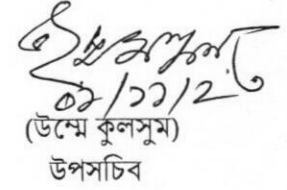 ০১/১১/২
(উম্মে কুলসুম)
উপসচিব